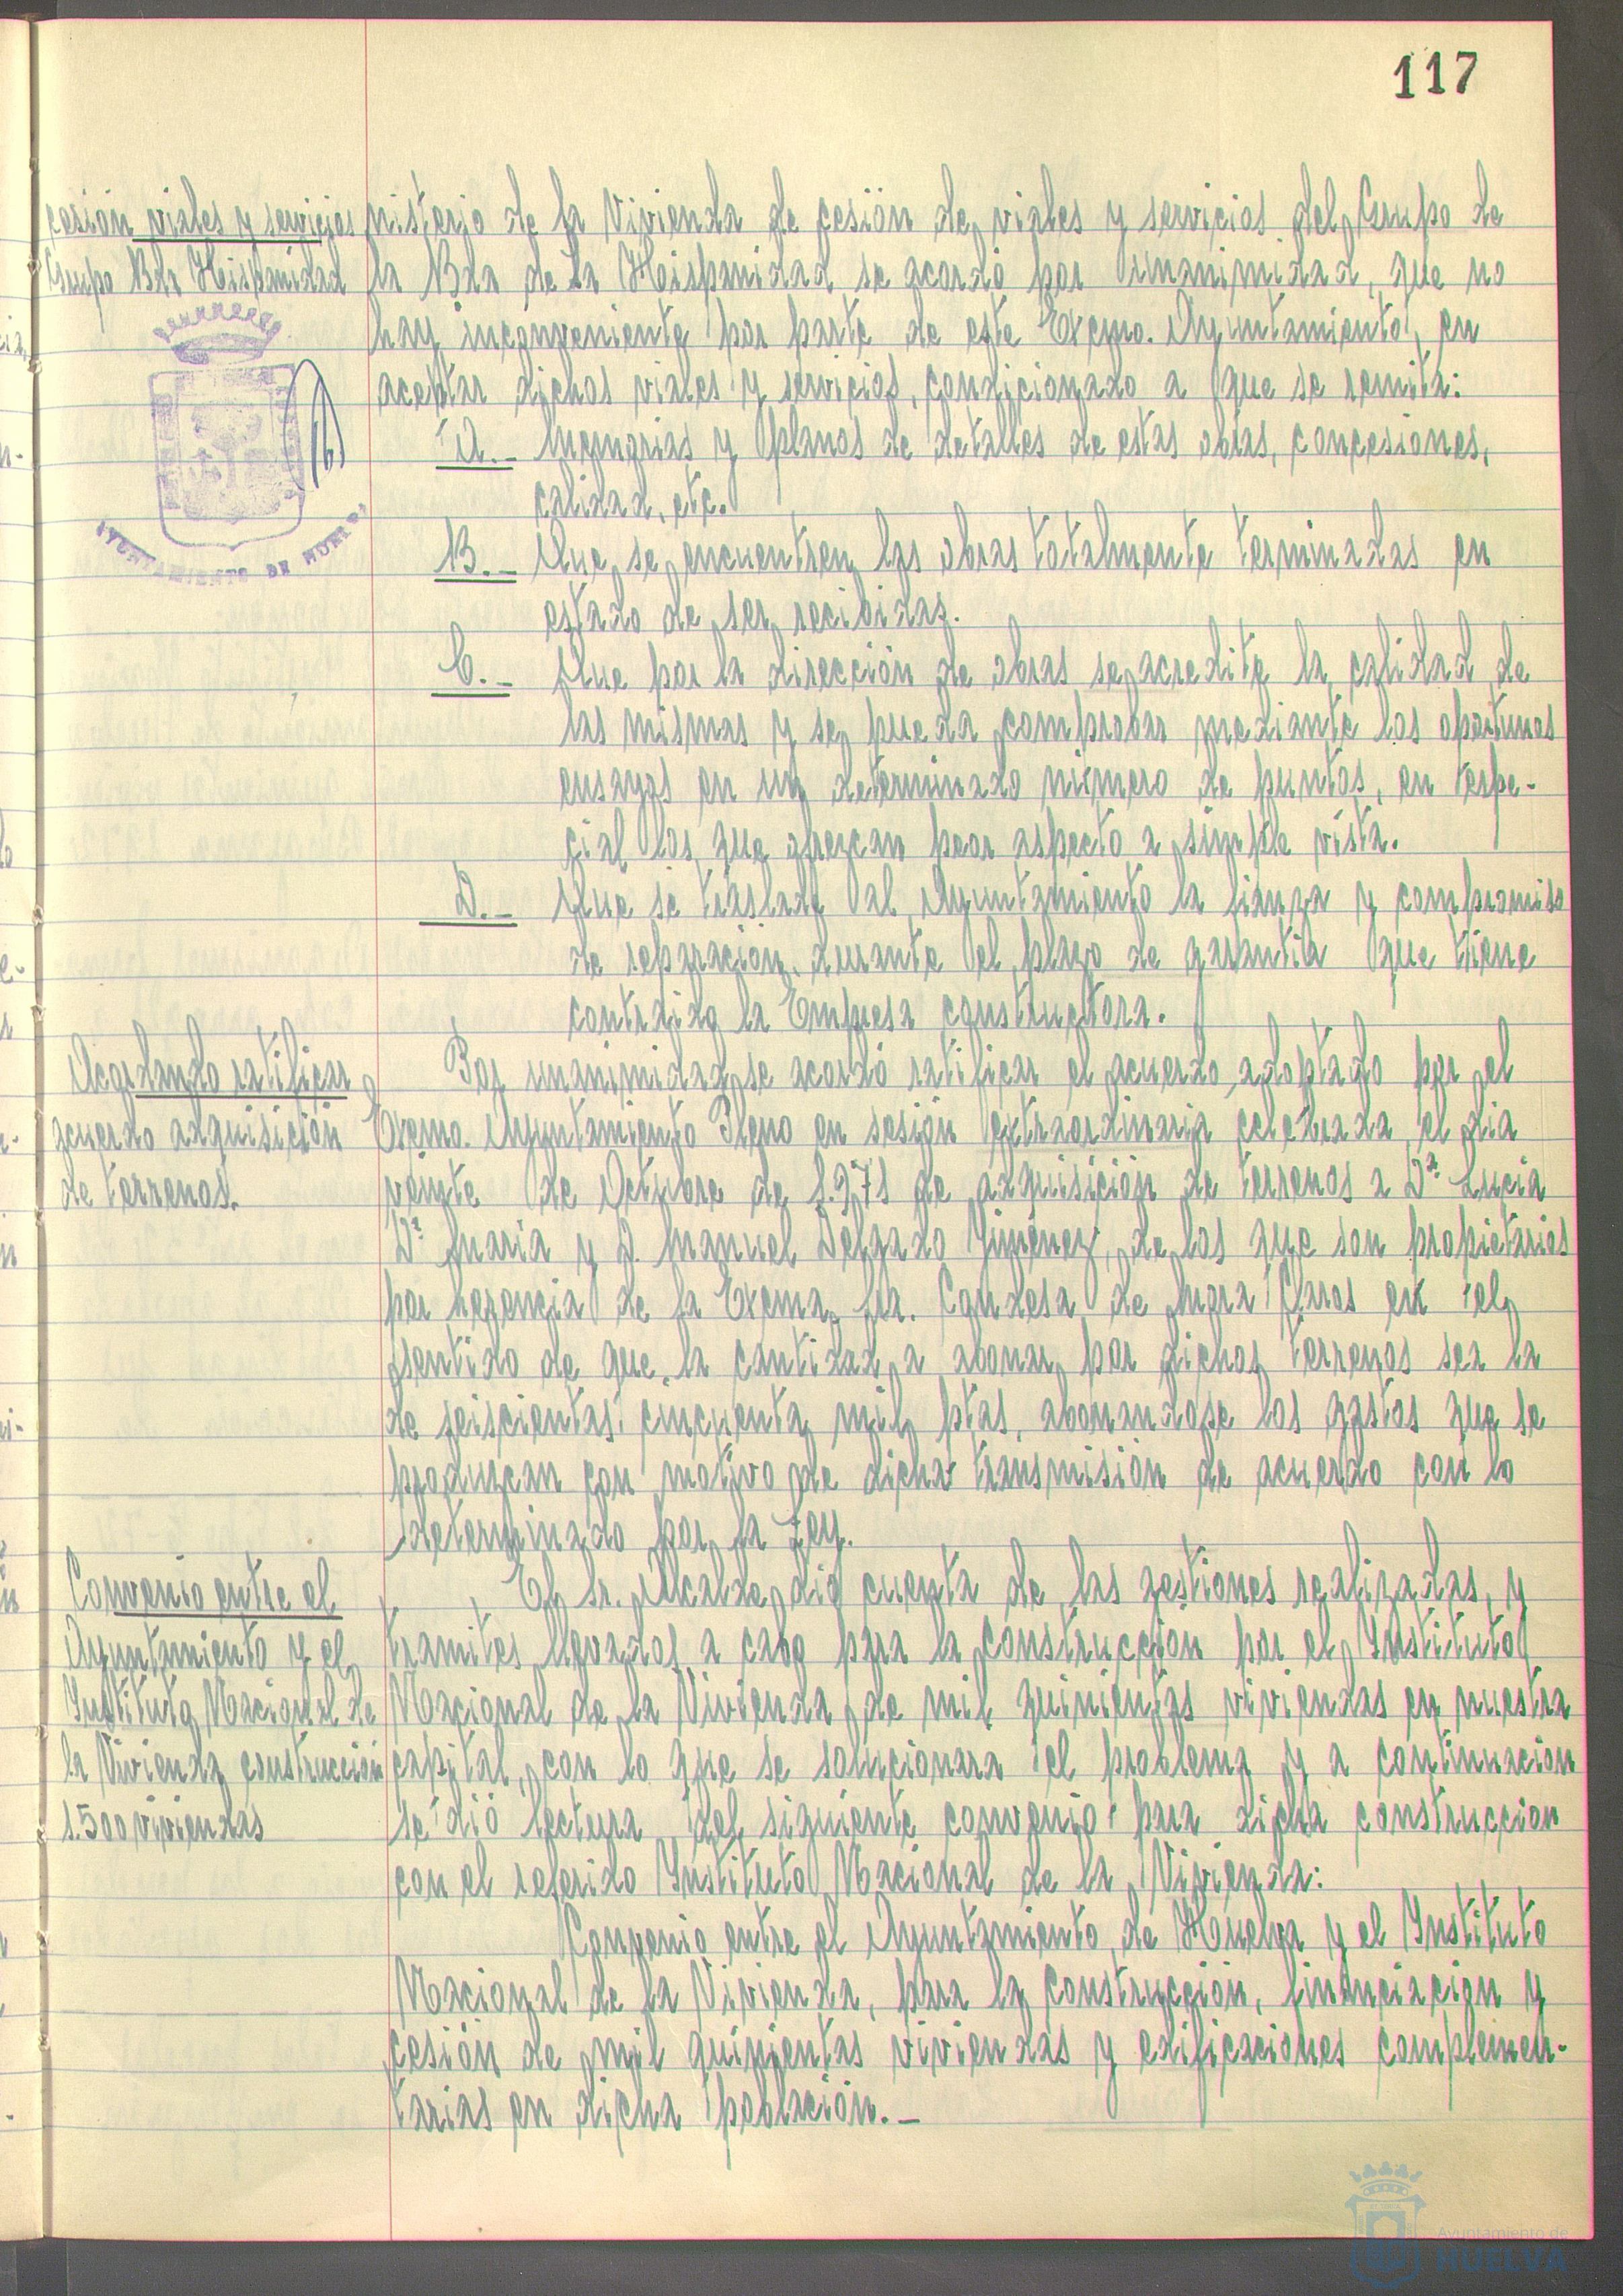 117
cesión viales y servicios
Grupo Bda Hispanidad
AYUNTAMIENTO DE HUELVA
nisterio de la Vivienda de cesión de viales y servicios del Grupo de
la Bda de la Hispanidad se acordó por unanimidad, que no
hay inconveniente por parte de este Excmo. Ayuntamiento, en
aceptar dichos viales y servicios, condicionado a que se remita:
A.- Memorias y planos de detalles de estas obras, concesiones,
calidad, etc.
B.- Que se encuentren las obras totalmente terminadas en
estado de ser recibidas.
C.- Que por la dirección de obras se acredite la calidad de
las mismas y se pueda comprobar mediante los oportunos
ensayos en un determinado número de puntos, en espe-
cial los que ofrezcan peor aspecto a simple vista.
D.- Que se traslade al Ayuntamiento la fianza y compromiso
de reparación durante el plazo de garantía que tiene
contraido la Empresa constructora.
Acordando ratificar
acuerdo adquisición
de terrenos.
Por unanimidad se acordó ratificar el acuerdo adoptado por el
Excmo. Ayuntamiento Pleno en sesión extraordinaria celebrada el dia
veinte de Octubre de 1.971 de adquisición de terrenos a Dª Lucia
Dª Maria y D. Manuel Delgado Jimenez, de los que son propietarios
por herencia de la Excma. Sra. Condesa de Mora Claros en el
sentido de que la cantidad a abonar por dichos terrenos sea la
de seiscientas cincuenta mil ptas, abonandose los gastos que se
produzcan con motivo de dicha transmisión de acuerdo con lo
determinado por la Ley.
Convenio entre el
Ayuntamiento y el
Instituto Nacional de
la Vivienda construcción
1.500 viviendas
El Sr. Alcalde dió cuenta de las gestiones realizadas, y
tramites llevados a cabo para la construccion por el Instituto
Nacional de la Vivienda de mil quinientas viviendas en nuestra
capital, con lo que se solucionara el problema y a continuacion
se dió lectura del siguiente convenio para dicha construccion
con el referido Instituto Nacional de la Vivienda:
Convenio entre el Ayuntamiento de Huelva y el Instituto
Nacional de la Vivienda, para la construcción, financiacion y
cesión de mil quinientas viviendas y edificaciones complemen-
tarias en dicha población.-
Ayuntamiento de
HUELVA